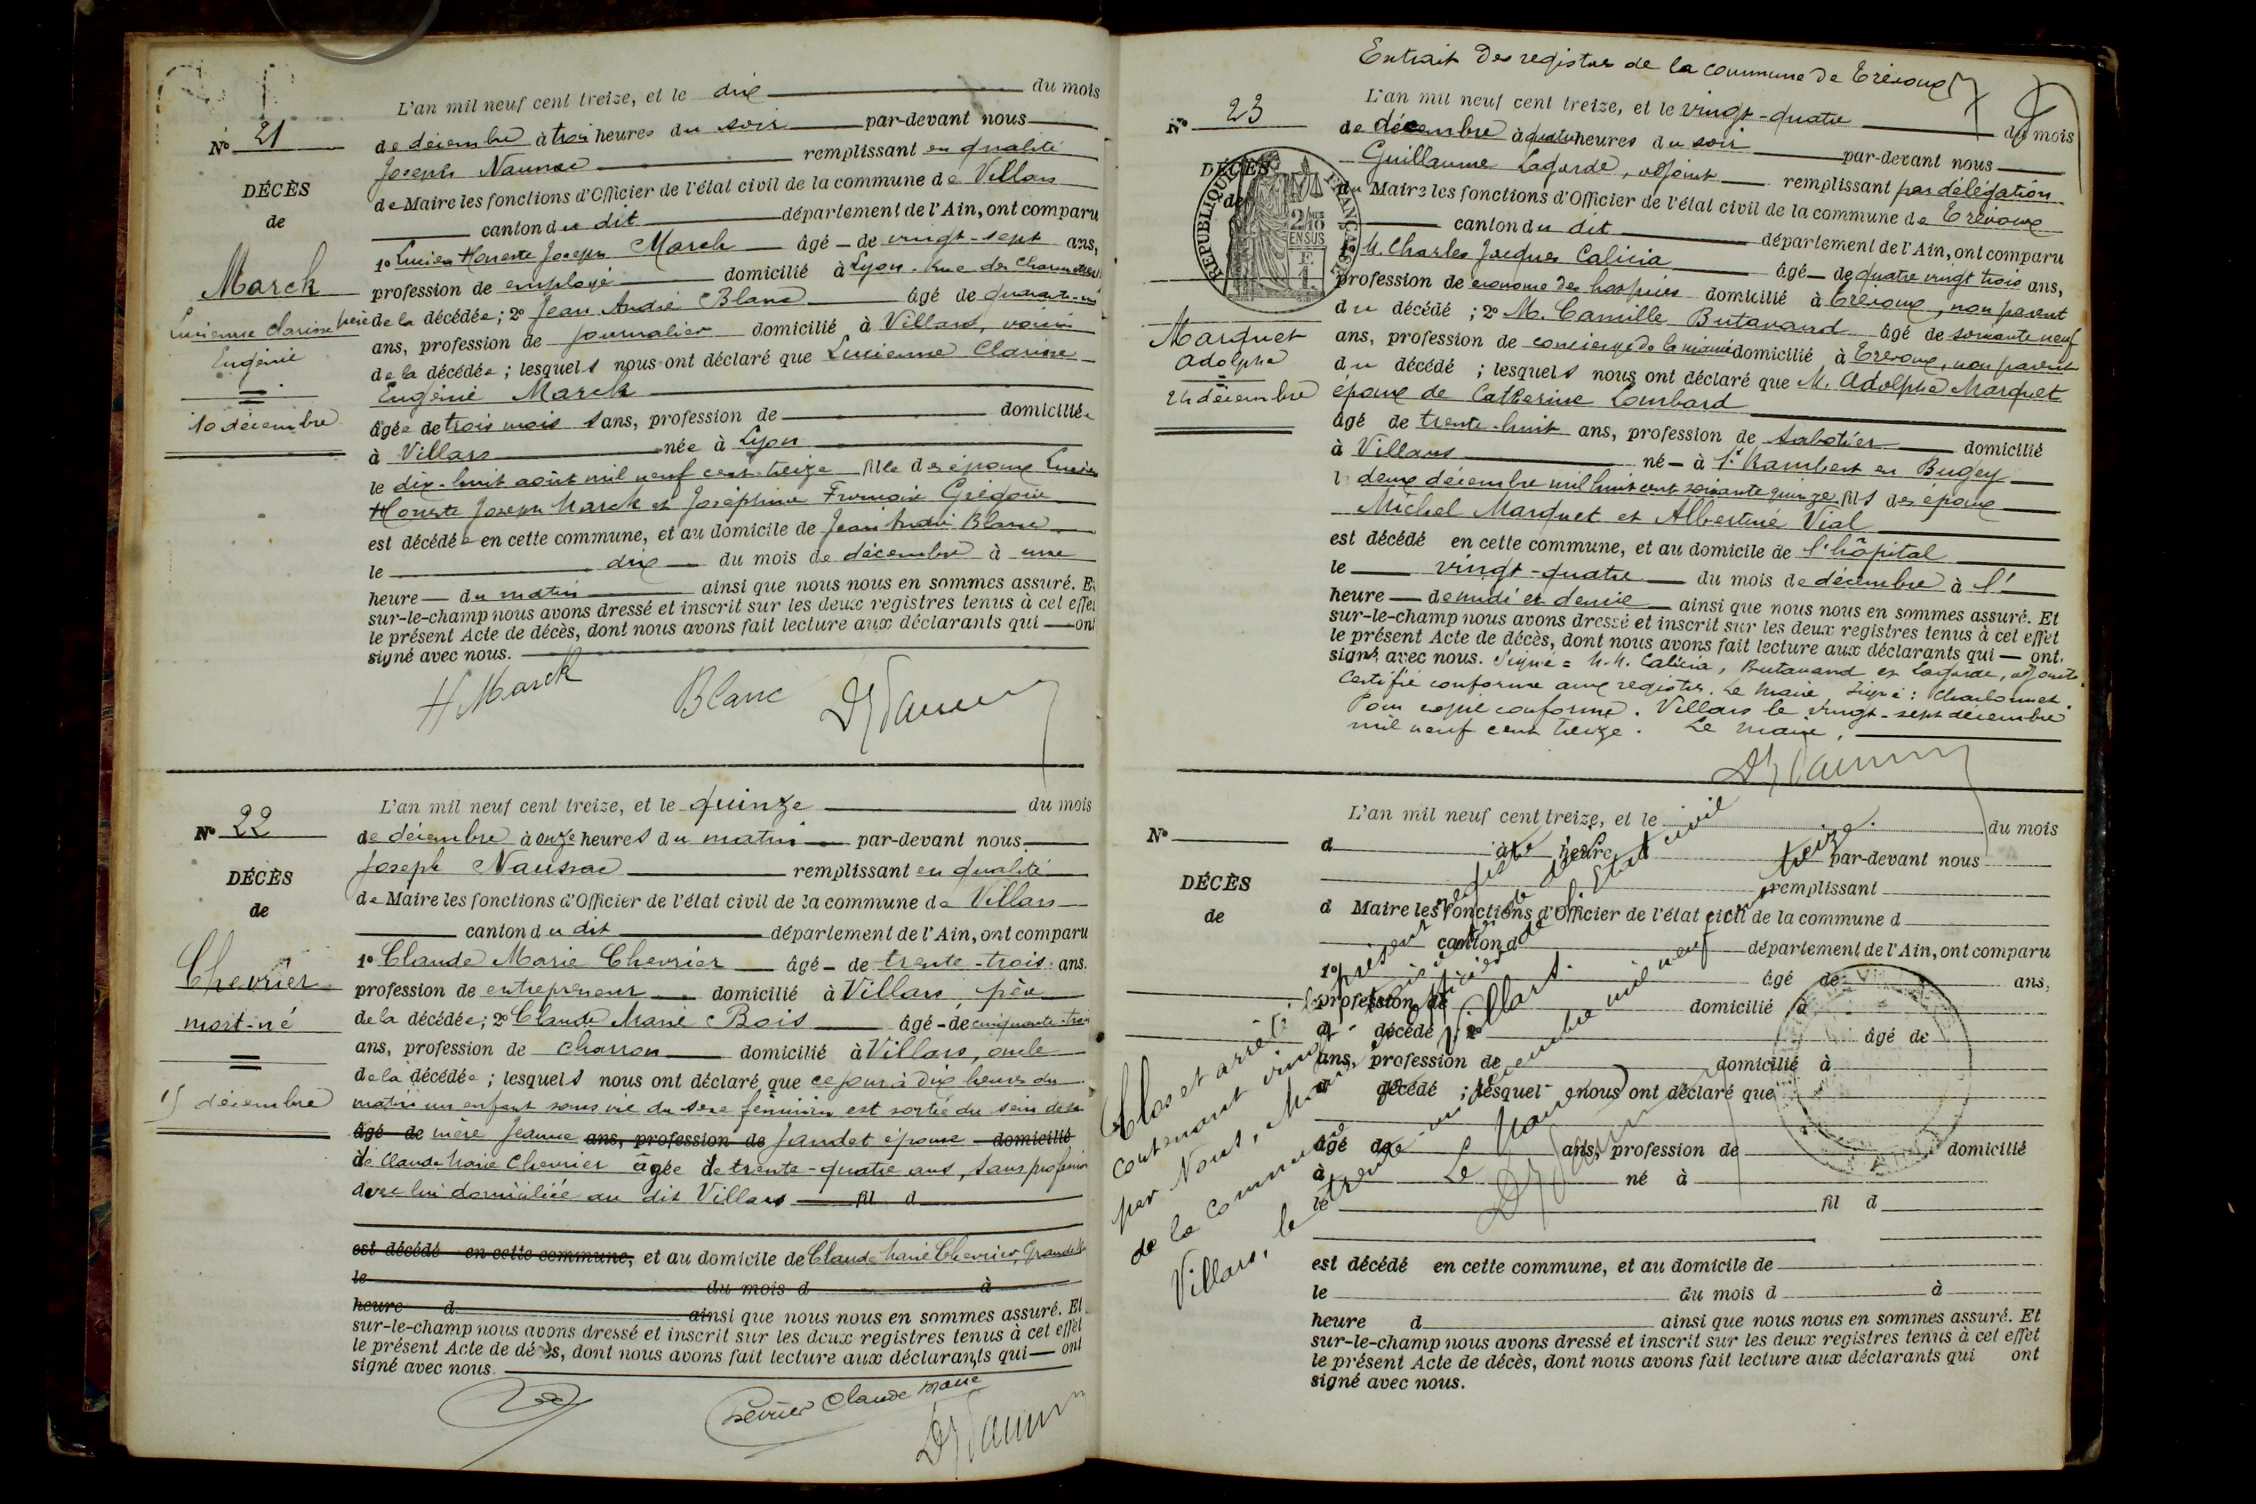 L'an mil neuf cent treize, et le dix du mois
de décembre à trois heures du soir par-devant nous
Joseph Naussac remplissant en qualité
de Maire les fonctions d'Officier de l'état civil de la commune de Villars
canton du dit département de l'Ain, ont comparu
1º Lucien Honeste Joseph March âgé de vingt-sept ans,
profession de employé domicilié à Lyon, Rue des
père de la décédée; 2º Jean André Blanc âgé de
ans, profession de journalier domicilié à Villars, voisin
de la décédée; lesquels nous ont déclaré que Lucienne Clarisse
Eugénie March
âgée de trois mois sans, profession de domiciliée
à Villars née à Lyon
le dix-huit août mil neuf cent treize fille des époux Lucien
Honeste Joseph March et Joséphine Grégoire
est décédée en cette commune, et au domicile de Jean André Blanc
le dix du mois de décembre à une
heure du matin ainsi que nous nous en sommes assuré. Et
sur-le-champ nous avons dressé et inscrit sur les deux registres tenus à cet effet
le présent Acte de décès, dont nous avons fait lecture aux déclarants qui ont
signé avec nous.
Nº 21
DÉCÈS
de
March
Lucienne Clarisse
Eugénie
10 décembre
H March Blanc
L'an mil neuf cent treize, et le quinze du mois
de décembre à onze heures du matin par-devant nous
Joseph Naussac remplissant en qualité
de Maire les fonctions d'Officier de l'état civil de la commune de Villars
canton du dit département de l'Ain, ont comparu
1º Claude Marie Chevrier âgé de trente-trois ans.
profession de entrepreneur domicilié à Villars, père
de la décédée; 2º Claude Marie Bois âgé de cinquante-trois
ans, profession de charron domicilié à Villars, oncle
de la décédée; lesquels nous ont déclaré que ce jour à dix heures du
matin un enfant sans vie du sexe féminin est sortie du sein de sa
âgé de mère Jeanne ans, profession de Jandet épouse domicilié
de Claude Marie Chevrier âgée de trente-quatre ans, sans profession
avec lui domiciliée au dit Villars fil d
est décédé en cette commune, et au domicile de Claude Marie Chevrier,
le du mois d à
heure d ainsi que nous nous en sommes assuré. Et
sur-le-champ nous avons dressé et inscrit sur les deux registres tenus à cet effet
le présent Acte de décès, dont nous avons fait lecture aux déclarants qui ont
signé avec nous.
Nº 22
DÉCÈS
de
Chevrier
mort-né
15 décembre
Chevrier Claude Marie
Extrait des registres de la commune de Trévoux
L'an mil neuf cent treize, et le vingt-quatre du mois
de décembre à quatre heures du soir par-devant nous
Guillaume Lagarde, adjoint remplissant par délégation
du Maire les fonctions d'Officier de l'état civil de la commune de Trévoux
canton du dit département de l'Ain, ont comparu
1º M. Charles Jacques Calicia âgé de quatre vingt trois ans,
profession de économe des hospices domicilié à Trévoux, non parent
du décédé; 2º M. Camille Butavand âgé de soixante neuf
ans, profession de concierge de la mairie domicilié à Trévoux, non parent
du décédé; lesquels nous ont déclaré que M. Adolphe Marquet
époux de Catherine Lombard
âgé de trente-huit ans, profession de sabotier domicilié
à Villars né à St Rambert en Bugey
le deux décembre mil huit cent soixante quinze fils des époux
Michel Marquet et Albertine Vial
est décédé en cette commune, et au domicile de l'hôpital
le vingt-quatre du mois de décembre à l'
heure de midi et demie ainsi que nous nous en sommes assuré. Et
sur-le-champ nous avons dressé et inscrit sur les deux registres tenus à cet effet
le présent Acte de décès, dont nous avons fait lecture aux déclarants qui ont
signé avec nous. Signé = M.M. Calicia, Butavand et Lagarde, adjoint.
Certifié conforme aux registres. Le Maire, Signé: Charbonnet.
Pour copie conforme. Villars le vingt-sept décembre
mil neuf cent treize. Le Maire,
Nº 23
DÉCÈS
de
RÉPUBLIQUE FRANÇAISE
2/10
EN SUS
Marquet
Adolphe
24 décembre
L'an mil neuf cent treize, et le du mois
d à heure d par-devant nous
remplissant
d Maire les fonctions d'Officier de l'état civil de la commune d
canton d département de l'Ain, ont comparu
1º âgé de ans,
profession de domicilié à
d décédé 2º âgé de
ans, profession de domicilié à
d décédé; lesquel nous ont déclaré que
âgé de ans, profession de domicilié
à né à
le fil d
est décédé en cette commune, et au domicile de
le du mois d à
heure d ainsi que nous nous en sommes assuré. Et
sur-le-champ nous avons dressé et inscrit sur les deux registres tenus à cet effet
le présent Acte de décès, dont nous avons fait lecture aux déclarants qui ont
signé avec nous.
Nº
DÉCÈS
de
Clos et arrêté le présent registre
contenant vingt-trois actes de décès
par Nous, Maire, Officier de l'Etat civil
de la Commune de Villars.
Villars, le trente-un décembre mil neuf cent treize.
Le Maire